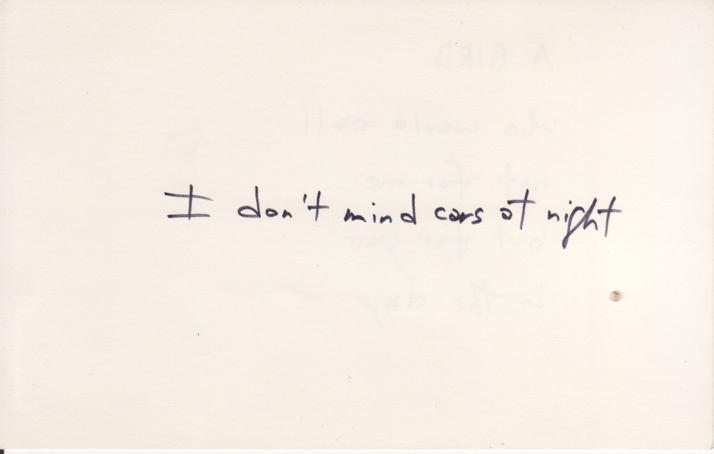 I don't mind cars at night